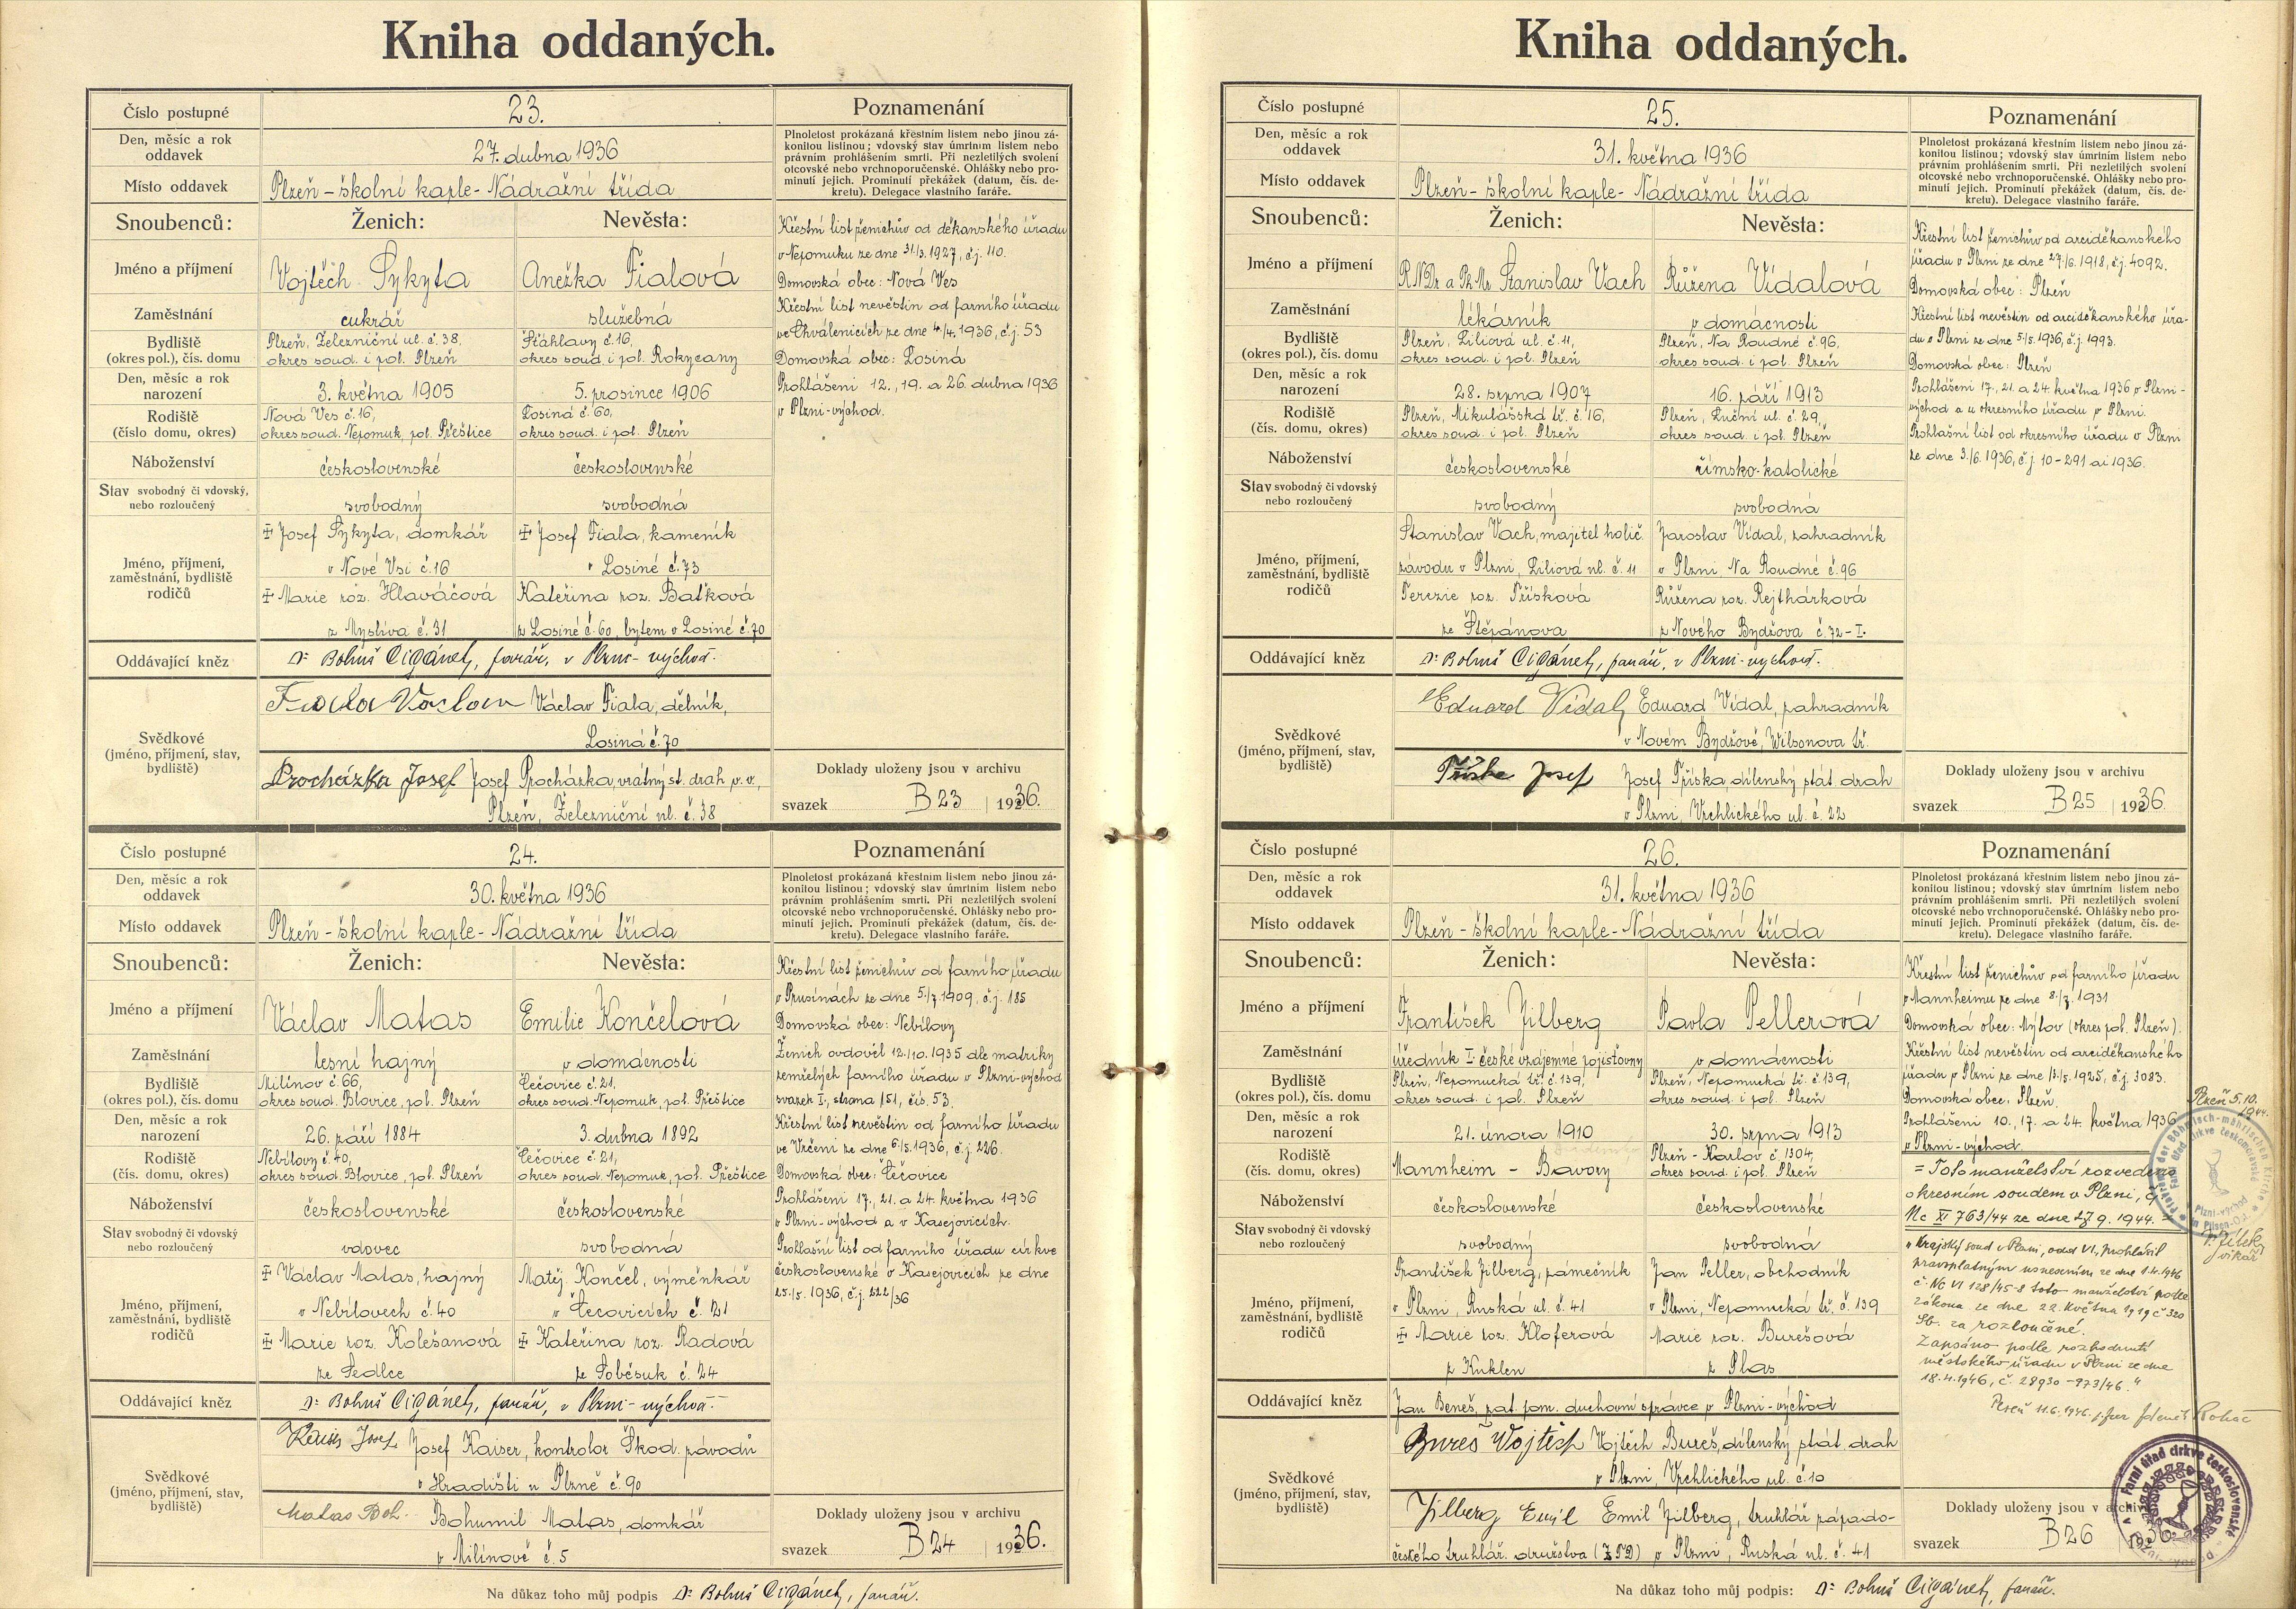 Kniha oddaných.
Číslo postupné
23.
Den, měsíc a rok
oddavek
27. dubna 1936
Místo oddavek
Plzeň - školní kaple - Nádražní třída
Snoubenců:
Ženich:
Nevěsta:
Jméno a příjmení
Vojtěch Sykyta
Anežka Fialová
Zaměstnání
cukrář
služebná
Bydliště
(okres pol.), čís. domu
Plzeň, Železniční ul. č. 38,
okres soud. i pol. Plzeň
Šťáhlavy č. 16,
okres soud. i pol. Rokycany
Den, měsíc a rok
narození
3. května 1905
5. prosince 1906
Rodiště
(číslo domu, okres)
Nová Ves č. 16,
okres soud. Nepomuk, pol. Přeštice
Losiná č. 60,
okres soud. i pol. Plzeň
Náboženství
československé
československé
Stav svobodný či vdovský,
nebo rozloučený
svobodný
svobodná
Jméno, příjmení,
zaměstnání, bydliště
rodičů
‡ Josef Sykyta, domkář
v Nové Vsi č. 16
‡ Marie roz. Hlaváčová
z Myslíva č. 31
‡ Josef Fiala, kameník
v Losiné č. 73
Kateřina roz. Baťková
z Losiné č. 60, bytem v Losiné č. 70
Oddávající kněz
Dr Bohuš Cigánek, farář, v Plzni-východ.
Svědkové
(jméno, příjmení, stav,
bydliště)
Fiala Václav Václav Fiala, dělník,
Losiná č. 70
Procházka Josef Josef Procházka, vrátný st. drah v. v.,
Plzeň, Železniční ul. č. 38
Poznamenání
Plnoletost prokázaná křestním listem nebo jinou zá-
konitou listinou; vdovský stav úmrtním listem nebo
právním prohlášením smrti. Při nezletilých svolení
otcovské nebo vrchnoporučenské. Ohlášky nebo pro-
minutí jejich. Prominutí překážek (datum, čís. de-
kretu). Delegace vlastního faráře.
Křestní list ženichův od děkanského úřadu
v Nepomuku ze dne 31./3. 1927, č.j. 110.
Domovská obec: Nová Ves
Křestní list nevěstin od farního úřadu
ve Chválenicích ze dne 4./4. 1936, č.j. 53
Domovská obec: Losiná
Prohlášeni 12., 19. a 26. dubna 1936
v Plzni-východ.
Doklady uloženy jsou v archivu
svazek B23 | 1936.
Číslo postupné
24.
Den, měsíc a rok
oddavek
30. května 1936
Místo oddavek
Plzeň - školní kaple - Nádražní třída
Snoubenců:
Ženich:
Nevěsta:
Jméno a příjmení
Václav Matas
Emilie Končelová
Zaměstnání
lesní hajný
v domácnosti
Bydliště
(okres pol.), čís. domu
Milínov č. 66,
okres soud. Blovice, pol. Plzeň
Čečovice č. 21,
okres soud. Nepomuk, pol. Přeštice
Den, měsíc a rok
narození
26. září 1884
3. dubna 1892
Rodiště
(čís. domu, okres)
Nebílovy č. 40,
okres soud. Blovice, pol. Plzeň
Čečovice č. 21,
okres soud. Nepomuk, pol. Přeštice
Náboženství
československé
československé
Stav svobodný či vdovský
nebo rozloučený
vdovec
svobodná
Jméno, příjmení,
zaměstnání, bydliště
rodičů
‡ Václav Matas, hajný
v Nebílovech č. 40
‡ Marie roz. Kolešanová
ze Sedlce
Matěj Končel, výměnkář
v Čečovicích č. 21
‡ Kateřina roz. Radová
ze Soběsuk č. 24
Oddávající kněz
Dr Bohuš Cigánek, farář, v Plzni-východ.
Svědkové
(jméno, příjmení, stav,
bydliště)
Josef Josef Kaiser, kontrolor Škod. závodů
v Hradišti u Plzně č. 90
Matas Boh. Bohumil Matas, domkář
v Milínově č. 5
Poznamenání
Plnoletost prokázaná křestním listem nebo jinou zá-
konitou listinou; vdovský stav úmrtním listem nebo
právním prohlášením smrti. Při nezletilých svolení
otcovské nebo vrchnoporučenské. Ohlášky nebo pro-
minutí jejich. Prominutí překážek (datum, čís. de-
kretu). Delegace vlastního faráře.
Křestní list ženichův od farního úřadu
v Prusinách ze dne 5./7. 1909, č.j. 185
Domovská obec: Nebílovy
Ženich ovdověl 12./10. 1935 dle matriky
zemřelých farního úřadu v Plzni-východ
svazek I, strana 151, čís. 53.
Křestní list nevěstin od farního úřadu
ve Vrčeni ze dne 6./5. 1936, č.j. 226.
Domovská obec: Čečovice
Prohlášeni 17., 21. a 24. května 1936
v Plzni-východ a v Kasejovicích.
Prohlašní list od farního úřadu církve
československé v Kasejovicích ze dne
25./5. 1936, č.j. 222/36
Doklady uloženy jsou v archivu
svazek B24 | 1936.
Na důkaz toho můj podpis Dr Bohuš Cigánek, farář.
Kniha oddaných.
Číslo postupné
25.
Den, měsíc a rok
oddavek
31. května 1936
Místo oddavek
Plzeň - školní kaple - Nádražní třída
Snoubenců:
Ženich:
Nevěsta:
Jméno a příjmení
RNDr a PhMr Stanislav Vach
Růžena Vídalová
Zaměstnání
lékárník
v domácnosti
Bydliště
(okres pol.), čís. domu
Plzeň, Liliová ul. č. 11,
okres soud. i pol. Plzeň
Plzeň, Na Roudné č. 96,
okres soud. i pol. Plzeň
Den, měsíc a rok
narození
28. srpna 1907
16. září 1913
Rodiště
(čís. domu, okres)
Plzeň, Mikulášská tř. č. 16,
okres soud. i pol. Plzeň
Plzeň, Luční ul. č. 29,
okres soud. i pol. Plzeň
Náboženství
československé
římsko-katolické
Stav svobodný či vdovský
nebo rozloučený
svobodný
svobodná
Jméno, příjmení,
zaměstnání, bydliště
rodičů
Stanislav Vach, majitel holič.
závodu v Plzni, Liliová ul. č. 11
Terezie roz. Třísková
ze Štěpánova
Jaroslav Vídal, zahradník
v Plzni, Na Roudné č. 96
Růžena roz. Rejthárková
z Nového Bydžova č. 72-I.
Oddávající kněz
Dr Bohuš Cigánek, farář, v Plzni-východ.
Svědkové
(jméno, příjmení, stav,
bydliště)
Eduard Vídal, Eduard Vídal, zahradník
v Novém Bydžově, Wilsonova tř.
Tříska Josef Josef Tříska, dílenský stát. drah
v Plzni, Vrchlického ul. č. 22
Poznamenání
Plnoletost prokázaná křestním listem nebo jinou zá-
konitou listinou; vdovský stav úmrtním listem nebo
právním prohlášením smrti. Při nezletilých svolení
otcovské nebo vrchnoporučenské. Ohlášky nebo pro-
minutí jejich. Prominutí překážek (datum, čís. de-
kretu). Delegace vlastního faráře.
Křestní list ženichův od arciděkanského
úřadu v Plzni ze dne 27./6. 1918, č.j. 4092.
Domovská obec: Plzeň
Křestní list nevěstin od arciděkanského úřa-
du v Plzni ze dne 5./5. 1936, č.j. 1993.
Domovská obec: Plzeň
Prohlášeni 17., 21. a 24. května 1936 v Plzni-
východ a u okresního úřadu v Plzni.
Prohlašní list od okresního úřadu v Plzni
ze dne 3./6. 1936, č.j. 10-291 ai 1936.
Doklady uloženy jsou v archivu
svazek B25 | 1936.
Číslo postupné
26.
Den, měsíc a rok
oddavek
31. května 1936
Místo oddavek
Plzeň - školní kaple - Nádražní třída
Snoubenců:
Ženich:
Nevěsta:
Jméno a příjmení
František Jilberg
Pavla Pellerová
Zaměstnání
úředník I. české vzájemné pojišťovny
v domácnosti
Bydliště
(okres pol.), čís. domu
Plzeň, Nepomucká tř. č. 139,
okres soud. i pol. Plzeň
Plzeň, Nepomucká tř. č. 139,
okres soud. i pol. Plzeň
Den, měsíc a rok
narození
21. února 1910
30. srpna 1913
Rodiště
(čís. domu, okres)
Mannheim - Bavory
Plzeň - Karlov č. 1304,
okres soud. i pol. Plzeň
Náboženství
československé
československé
Stav svobodný či vdovský
nebo rozloučený
svobodný
svobodná
Jméno, příjmení,
zaměstnání, bydliště
rodičů
František Jilberg, zámečník
v Plzni, Ruská ul. č. 41
‡ Marie roz. Kloferová
z Kuklen
Jan Peller, obchodník
v Plzni, Nepomucká tř. č. 139
Marie roz. Burešová
z Plas
Oddávající kněz
Jan Beneš, zat. pom. duchovní správce v Plzni-východ
Svědkové
(jméno, příjmení, stav,
bydliště)
Bureš Vojtěch Vojtěch Bureš, dílenský stát. drah
v Plzni, Vrchlického ul. č. 10
Jilberg Emil Emil Jilberg, truhlář západo-
českého truhlář. družstva (ZTD) v Plzni, Ruská ul. č. 41
Poznamenání
Plnoletost prokázaná křestním listem nebo jinou zá-
konitou listinou; vdovský stav úmrtním listem nebo
právním prohlášením smrti. Při nezletilých svolení
otcovské nebo vrchnoporučenské. Ohlášky nebo pro-
minutí jejich. Prominutí překážek (datum, čís. de-
kretu). Delegace vlastního faráře.
Křestní list ženichův od farního úřadu
v Mannheimu ze dne 8./7. 1931
Domovská obec: Mýtov (okres pol. Plzeň).
Křestní list nevěstin od arciděkanského
úřadu v Plzni ze dne 13./5. 1925, č.j. 3083.
Domovská obec: Plzeň.
Prohlášeni 10., 17. a 24. května 1936
v Plzni-východ
= Toto manželství rozvedeno
okresním soudem v Plzni, čj.
Nc XI 763/44 ze dne 27. 9. 1944. =
Plzeň 5.10.
1944.
vikář
"Krajský soud v Plzni, odd. VI, prohlásil
pravoplatným usnesením ze dne 1.4.1946
č. Nc VI 128/45-8 toto manželství podle
zákona ze dne 22. května 1919 č. 320
Sb. za rozloučené.
Zapsáno podle rozhodnutí
městského úřadu v Plzni ze dne
18.4.1946, č. 28930-973/46."
Plzeň 11.6.1946.
Doklady uloženy jsou v archivu
svazek B26 1936.
Farní úřad církve československé
Na důkaz toho můj podpis: Dr Bohuš Cigánek, farář.